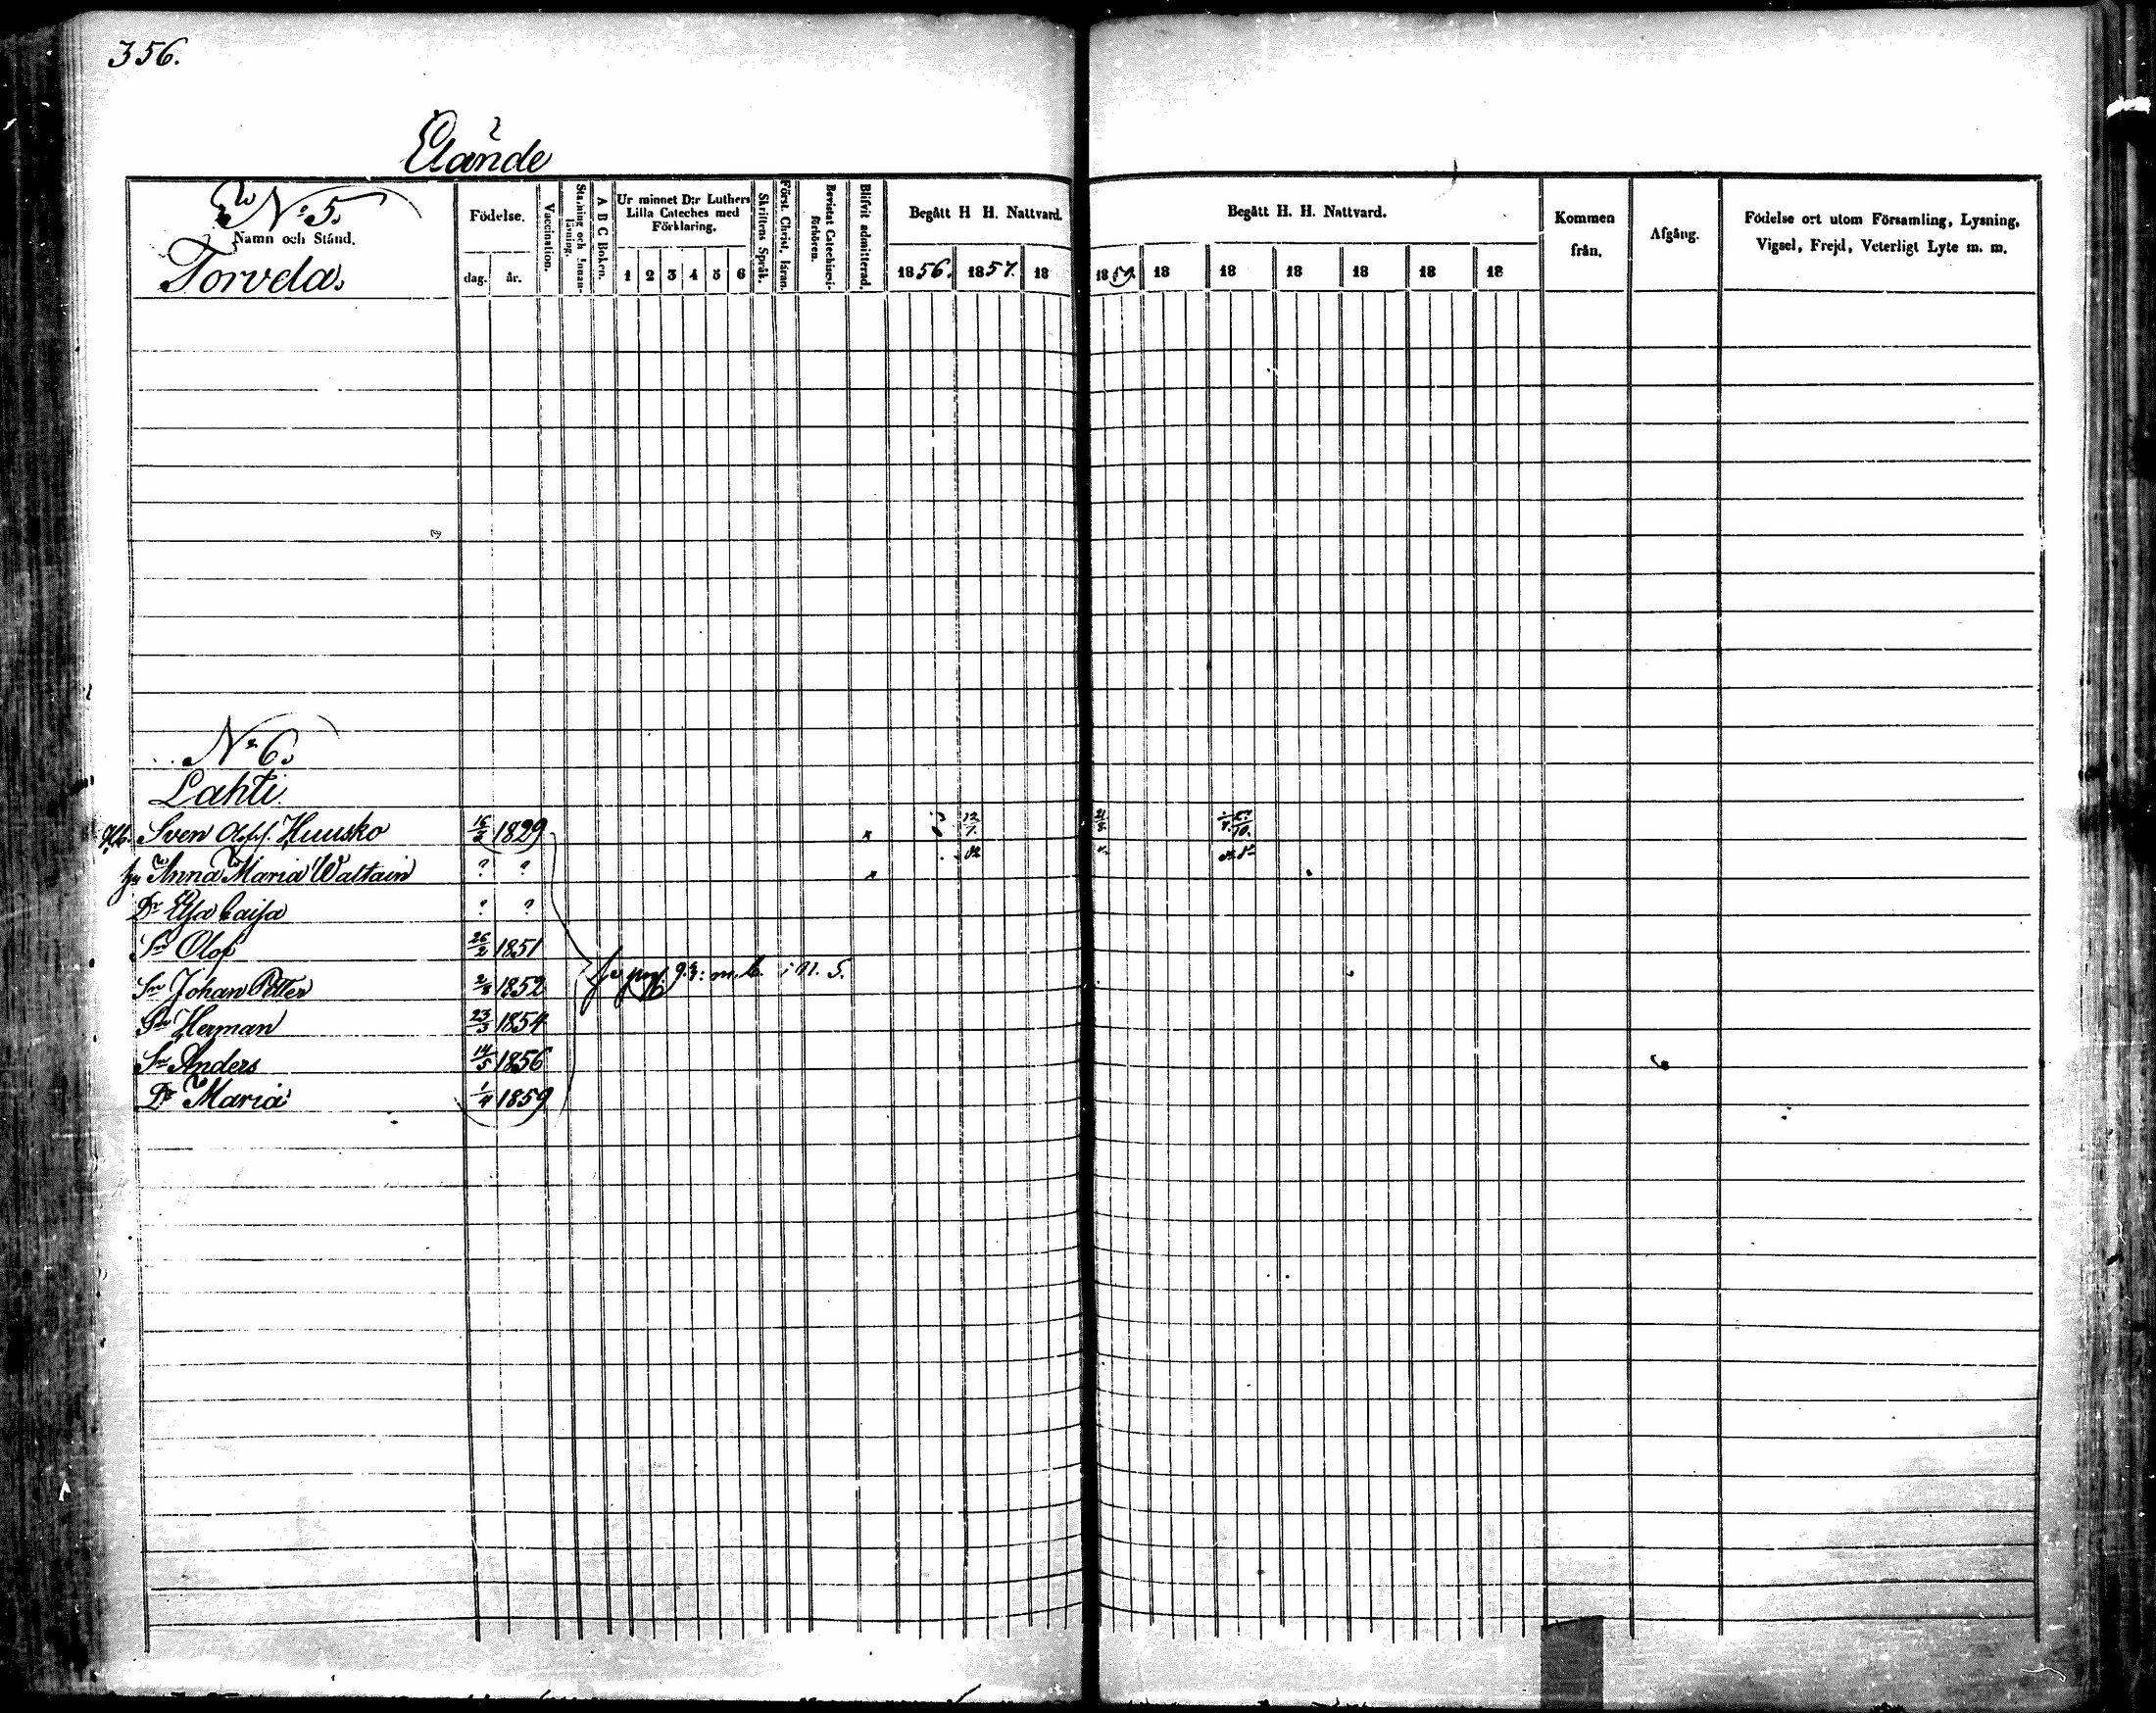 356.
Elände
No 5.
Namn och Stånd.
Torvela.
Födelse.
dag. år.
Vaccination.
Stafning och Innan-läsning.
A B C Boken.
Ur minnet D:r Luthers
Lilla Cateches med
Förklaring.
1 2 3 4 5 6
Skriftens Språk.
Först. Christ. läran.
Bevistat Catechismi-förhören.
Blifvit admitterad.
Begått H H. Nattvard.
1856. 1857. 18
Begått H. H. Nattvard.
1859. 18 18 18 18 18 18
Kommen
från.
Afgång.
Födelse ort utom Församling, Lysning,
Vigsel, Frejd, Veterligt Lyte m. m.
No 6.
Lahti.
Sven Olofss. Huusko 16/2 1829 x 12/7.
hu Anna Maria Waltain ? ? x
Dr Elsa Caisa ? ?
Sn Olof 26/2 1851
Sn Johan Petter 2/8 1852
Sn Herman 23/3 1854
Sn Anders 14/5 1856
Dr Maria 1/4 1859